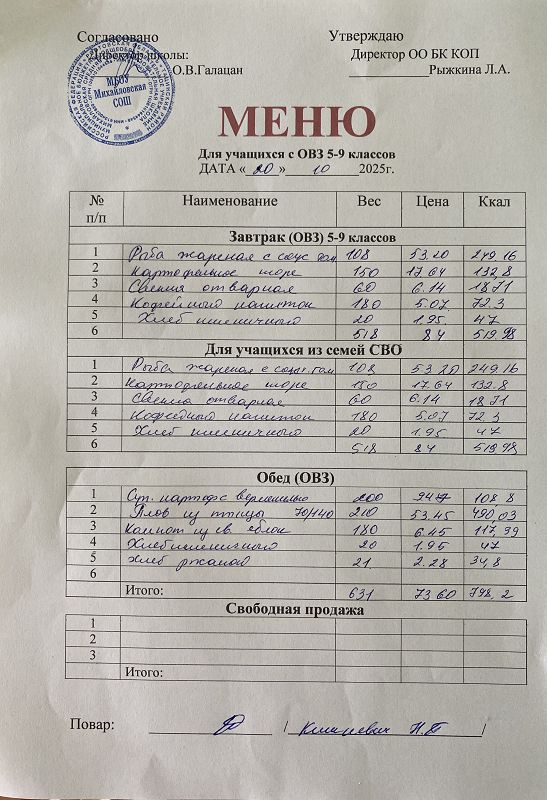 Согласовано Утверждаю
Директор школы: Директор ОО БК КОП
О.В.Галацан Рыжкина Л.А.
МБОУ
Михайловская
СОШ
МЕНЮ
Для учащихся с ОВЗ 5-9 классов
ДАТА « 20 » 10 2025г.
№ п/п Наименование Вес Цена Ккал
Завтрак (ОВЗ) 5-9 классов
1 Рыба жареная с соус том 108 53.20 249.16
2 Картофельное пюре 150 17.64 132.8
3 Свекла отварная 60 6.14 18.71
4 Кофейного напиток 180 5.07 72.3
5 Хлеб пшеничного 20 1.95 47
6 518 84 519.98
Для учащихся из семей СВО
1 Рыба жареная с соус. том 108 53.20 249.16
2 Картофельное пюре 150 17.64 132.8
3 Свекла отварная 60 6.14 18.71
4 Кофейный напиток 180 5.07 72.3
5 Хлеб пшеничного 20 1.95 47
6 518 84 519.98
Обед (ОВЗ)
1 Суп. картоф с вермишелью 200 9.47 108.8
2 Плов из птицы 70/140 210 53.45 490,03
3 Компот из св. яблок 180 6.45 117,39
4 Хлеб пшеничного 20 1.95 47
5 хлеб ржаной 21 2.28 34,8
6
Итого: 631 73 60 798,2
Свободная продажа
1
2
3
Итого:
Повар: / Н.П /